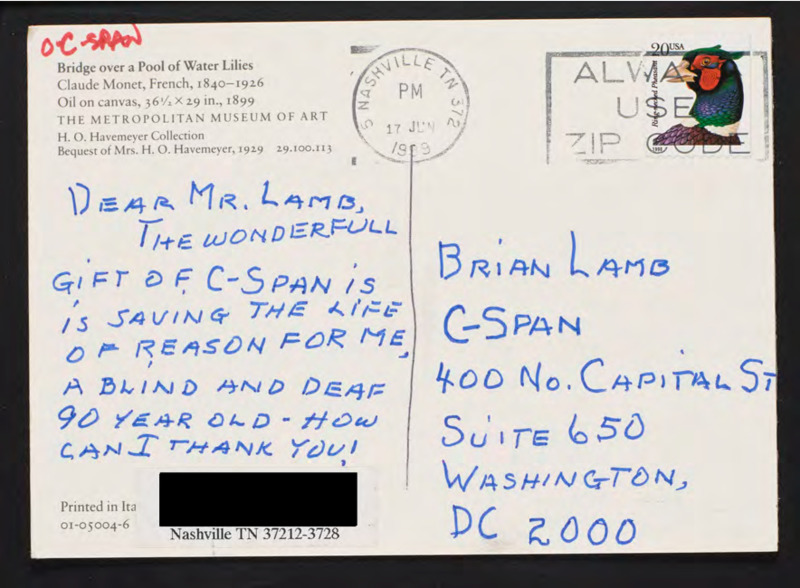 O-C-SPAN
Bridge over a Pool of Water Lilies
Claude Monet, French, 1840–1926
Oil on canvas, 36½ × 29 in., 1899
THE METROPOLITAN MUSEUM OF ART
H. O. Havemeyer Collection
Bequest of Mrs. H. O. Havemeyer, 1929 29.100.113
NASHVILLE TN 372
PM
17 JUN
1999
ALWA
USE
ZIP CODE
20USA
Ring-necked Pheasant
1998
DEAR MR. LAMB,
THE WONDERFULL
GIFT OF C-SPAN IS
IS SAVING THE LIFE
OF REASON FOR ME,
A BLIND AND DEAF
90 YEAR OLD - HOW
CAN I THANK YOU!
BRIAN LAMB
C-SPAN
400 NO. CAPITAL ST
SUITE 650
WASHINGTON,
DC 2000
Printed in Ita
01-05004-6
Nashville TN 37212-3728